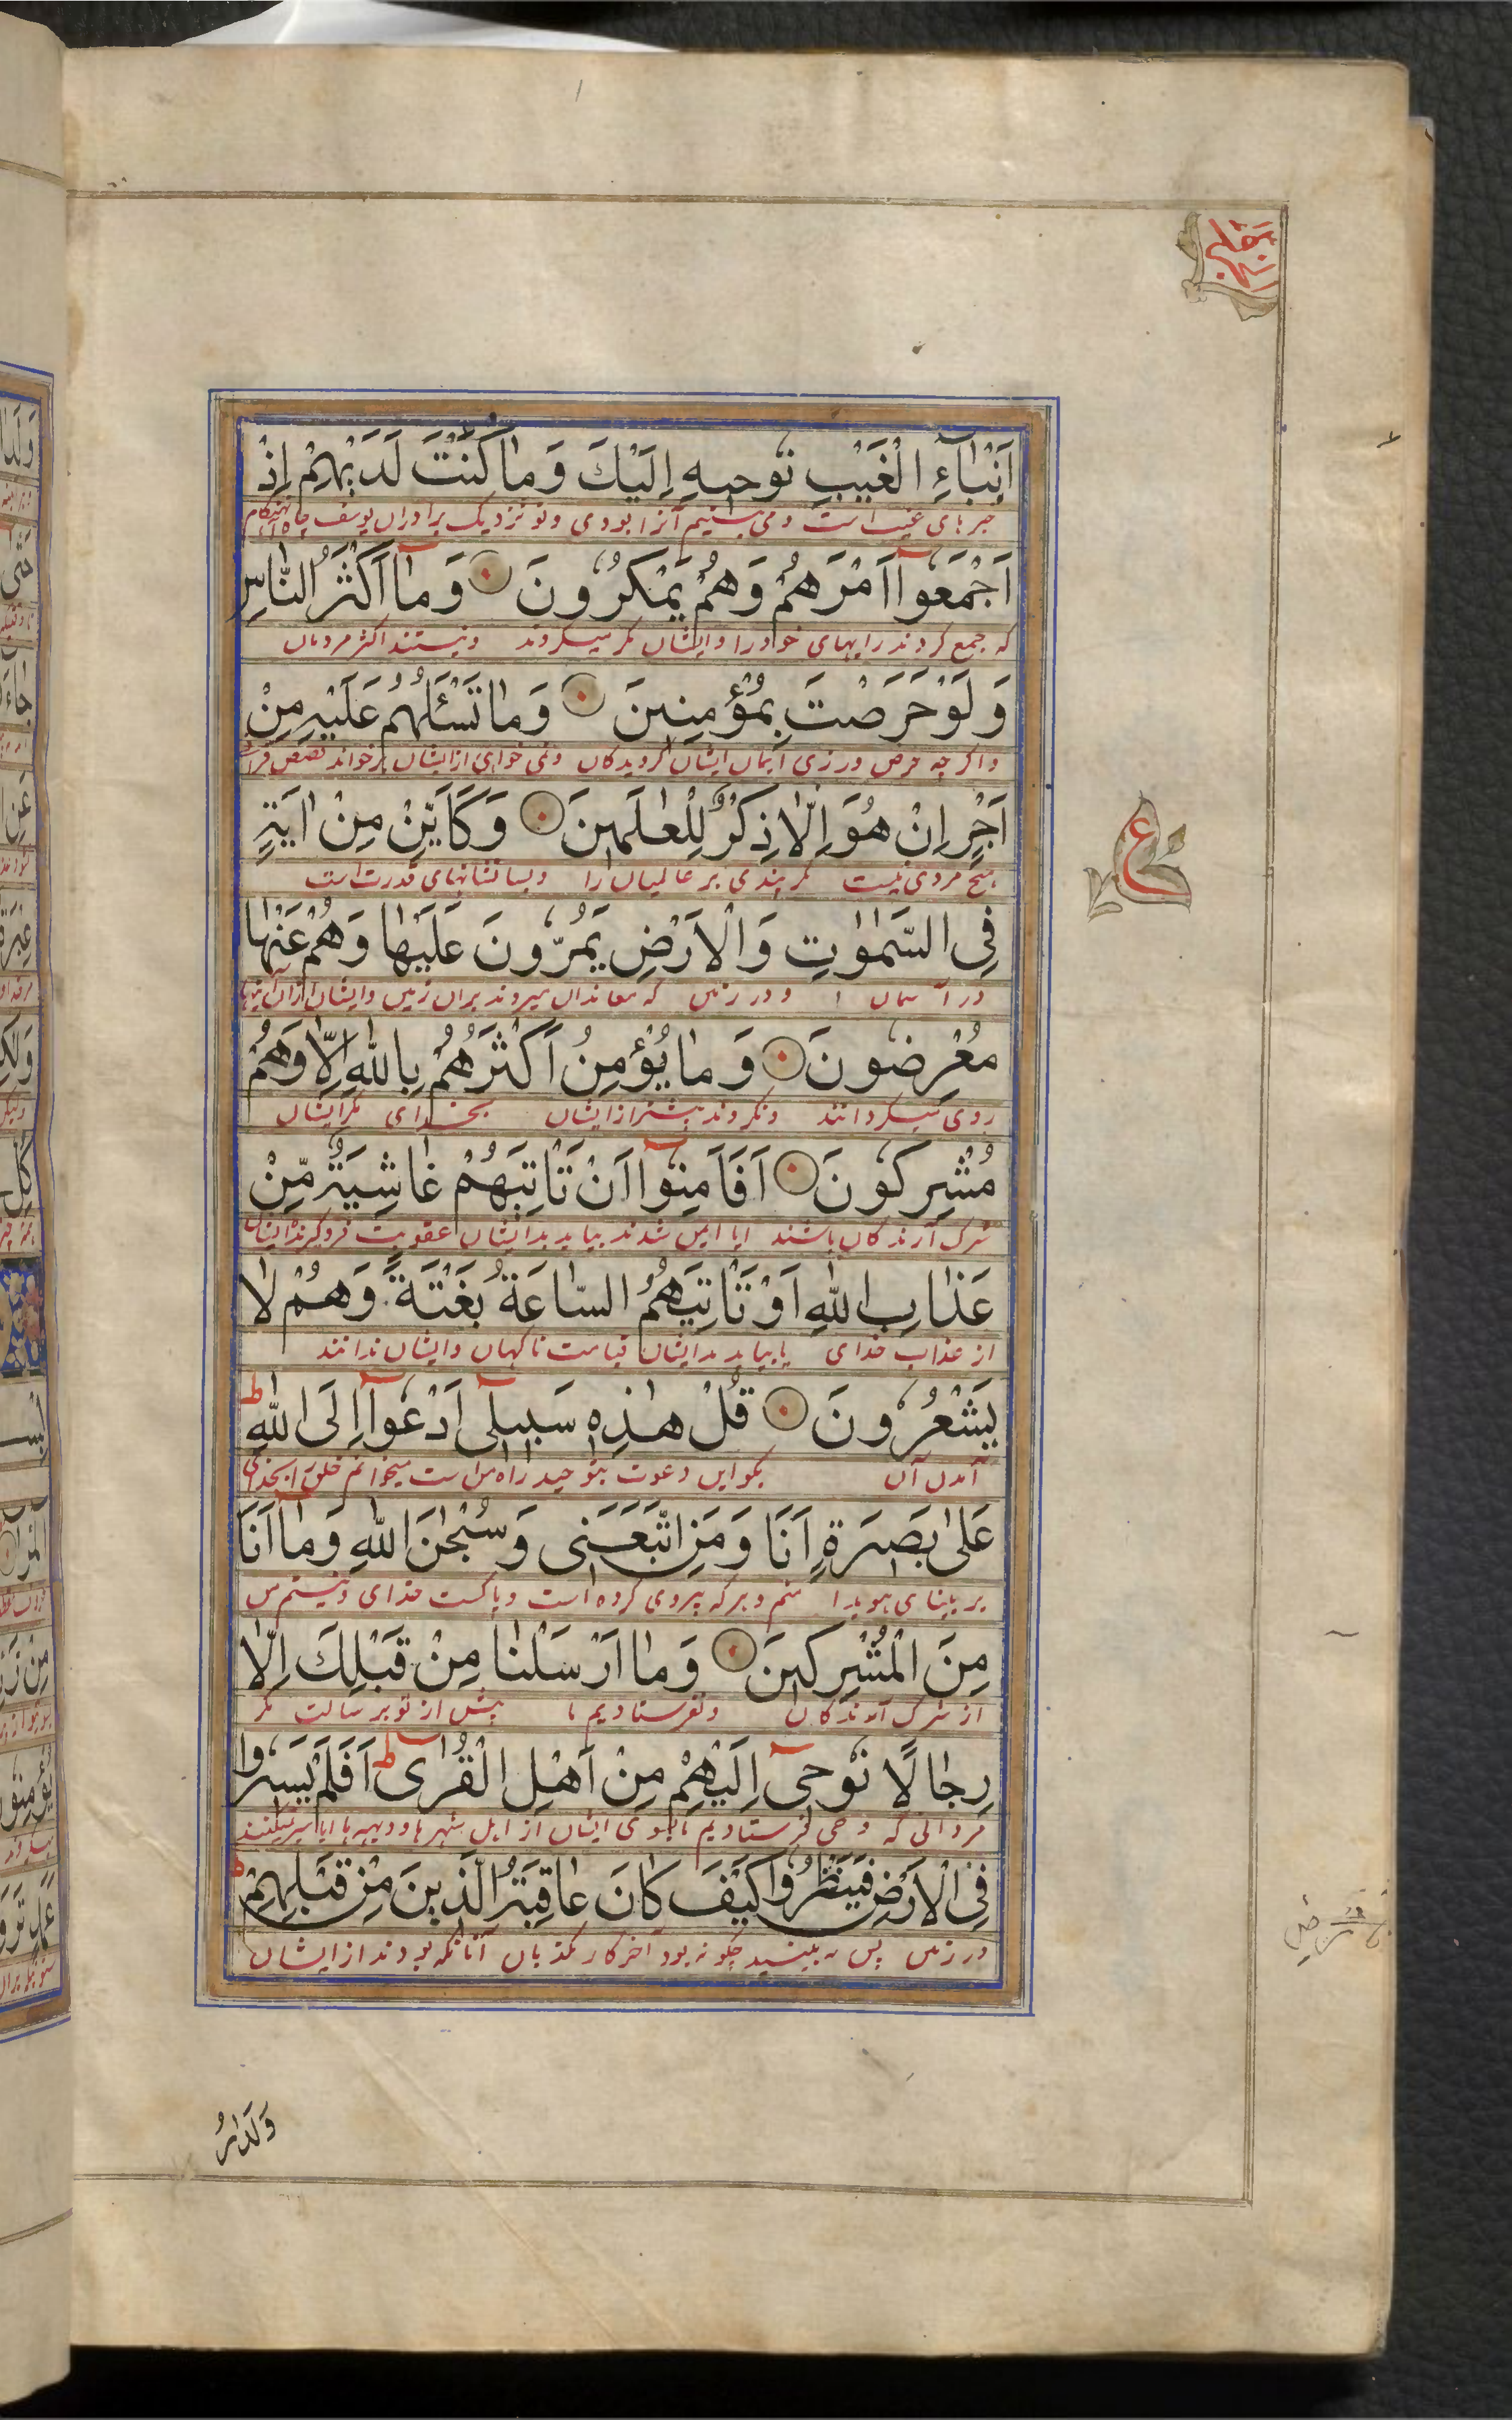 اَنْبٰاۤءِ الْغَيْبِ نُوحيهِ اِلَيْكَ وَ مٰا كُنْتَ لَدَيْهِمْ اِذْ
خبرهای غیب است و می بستیم آنرا بودی و تو نزدیک برادران یوسف
اَجْمَعُوۤا اَمْرَهُمْ وَهُمْ يَمْكُرُونَ وَ مٰۤا اَكْثَرُ النّٰاسِ
که جمع کردند رایهای خود را و ایشان مکر میکردند و نیستند اکثر مردمان
وَ لَوْ حَرَصْتَ بِمُؤْمِنينَ وَ مٰا تَسْئَلُهُمْ عَلَيْهِ مِنْ
و اگر چه حرص ورزی ایمان ایشان گرویدکان و نمی خواهی از ایشان بر خواند قصص قرآن
اَجْرٍ اِنْ هُوَ اِلّٰا ذِكْرٌ لِلْعٰلَمينَ وَ كَاَيِّنْ مِنْ اٰيَةٍ
هیچ مزدی نیست مکر پندی بر عالمیان را و بسا نشانهای قدرت است
فِى السَّمٰوٰتِ وَ الْاَرْضِ يَمُرُّونَ عَلَيْهٰا وَ هُمْ عَنْهٰا
در آسمان ا و در زمین که معاندان میروند بران زمین و ایشان ازان آینها
مُعْرِضُونَ وَ مٰا يُؤْمِنُ اَكْثَرُهُمْ بِاللّٰهِ اِلّٰا وَهُمْ
روی میکردانند و نکروند بیشتر از ایشان بخدای مکر ایشان
مُشْرِكُونَ اَفَاَمِنُوۤا اَنْ تَاْتِيَهُمْ غٰاشِيَةٌ مِّنْ
شرک آرندکان باشند ایا ایمن شدند بیاید بدایشان عقوبت فروکیرنده ایشان
عَذٰابِ اللّٰهِ اَوْ تَاْتِيَهُمُ السّٰاعَةُ بَغْتَةً وَ هُمْ لٰا
از عذاب خدای یا بیاید بدایشان قیامت ناکهان و ایشان ندانند
يَشْعُرُونَ قُلْ هٰذِهٖ سَبيلىۤ اَدْعُوۤا اِلَى اللّٰهِ ط
آمدن آن بکو این دعوت بتوحید راه من است میخوانم خلق را بخدای
عَلىٰ بَصيرَةٍ اَنَا وَ مَنِ اتَّبَعَنى وَ سُبْحٰنَ اللّٰهِ وَ مٰۤا اَنَا
بر بینای هویدا منم و هر که پیروی کرده است و پاکست خدای و نیستم من
مِنَ الْمُشْرِكينَ وَ مٰا اَرْسَلْنٰا مِنْ قَبْلِكَ اِلّٰا
از شرک آرندکان و نفرستادیم ما پیش از تو برسالت مکر
رِجٰالًا نُوحىۤ اِلَيْهِمْ مِنْ اَهْلِ الْقُرٰى ط اَفَلَمْ يَسيرُوا
مردانی که وحی فرستادیم ما بسوی ایشان از اهل شهرها و دیهه ها ایا سیر نمیکنند
فِى الْاَرْضِ فَيَنْظُرُوا كَيْفَ كٰانَ عٰاقِبَةُ الَّذينَ مِنْ قَبْلِهِمْ ط
در زمین پس به بینید چکونه بود آخر کار مکذبان آنانکه بودند از ایشان
ع
وَ لَدٰارُ